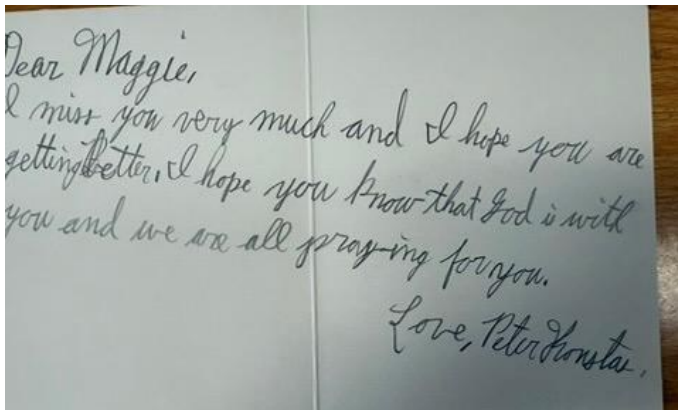 Dear Maggie,
I miss you very much and I hope you are
getting better. I hope you know that God is with
you and we are all praying for you.
Love, Peter Konstas.